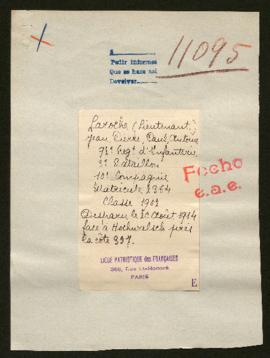 A
Pedir informes
Que se hace así
Devolver
11095
Laroche (Lieutenant)
Jean Pierre, Paul, Antoine
95e Regt d'Infanterie
3e Bataillon
10e Compagnie
Matricule 2364
Classe 1902
Disparu le 20 Août 1914
face à près
la côte 327.
Fecho
e.a.e.
LIGUE PATRIOTIQUE des FRANÇAISES
368, Rue St-Honoré
PARIS
E